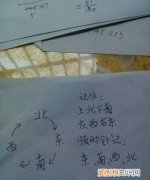 北
西 东
南
记住:
上北下南
左西右东
顺时针记:
东,南,西,北